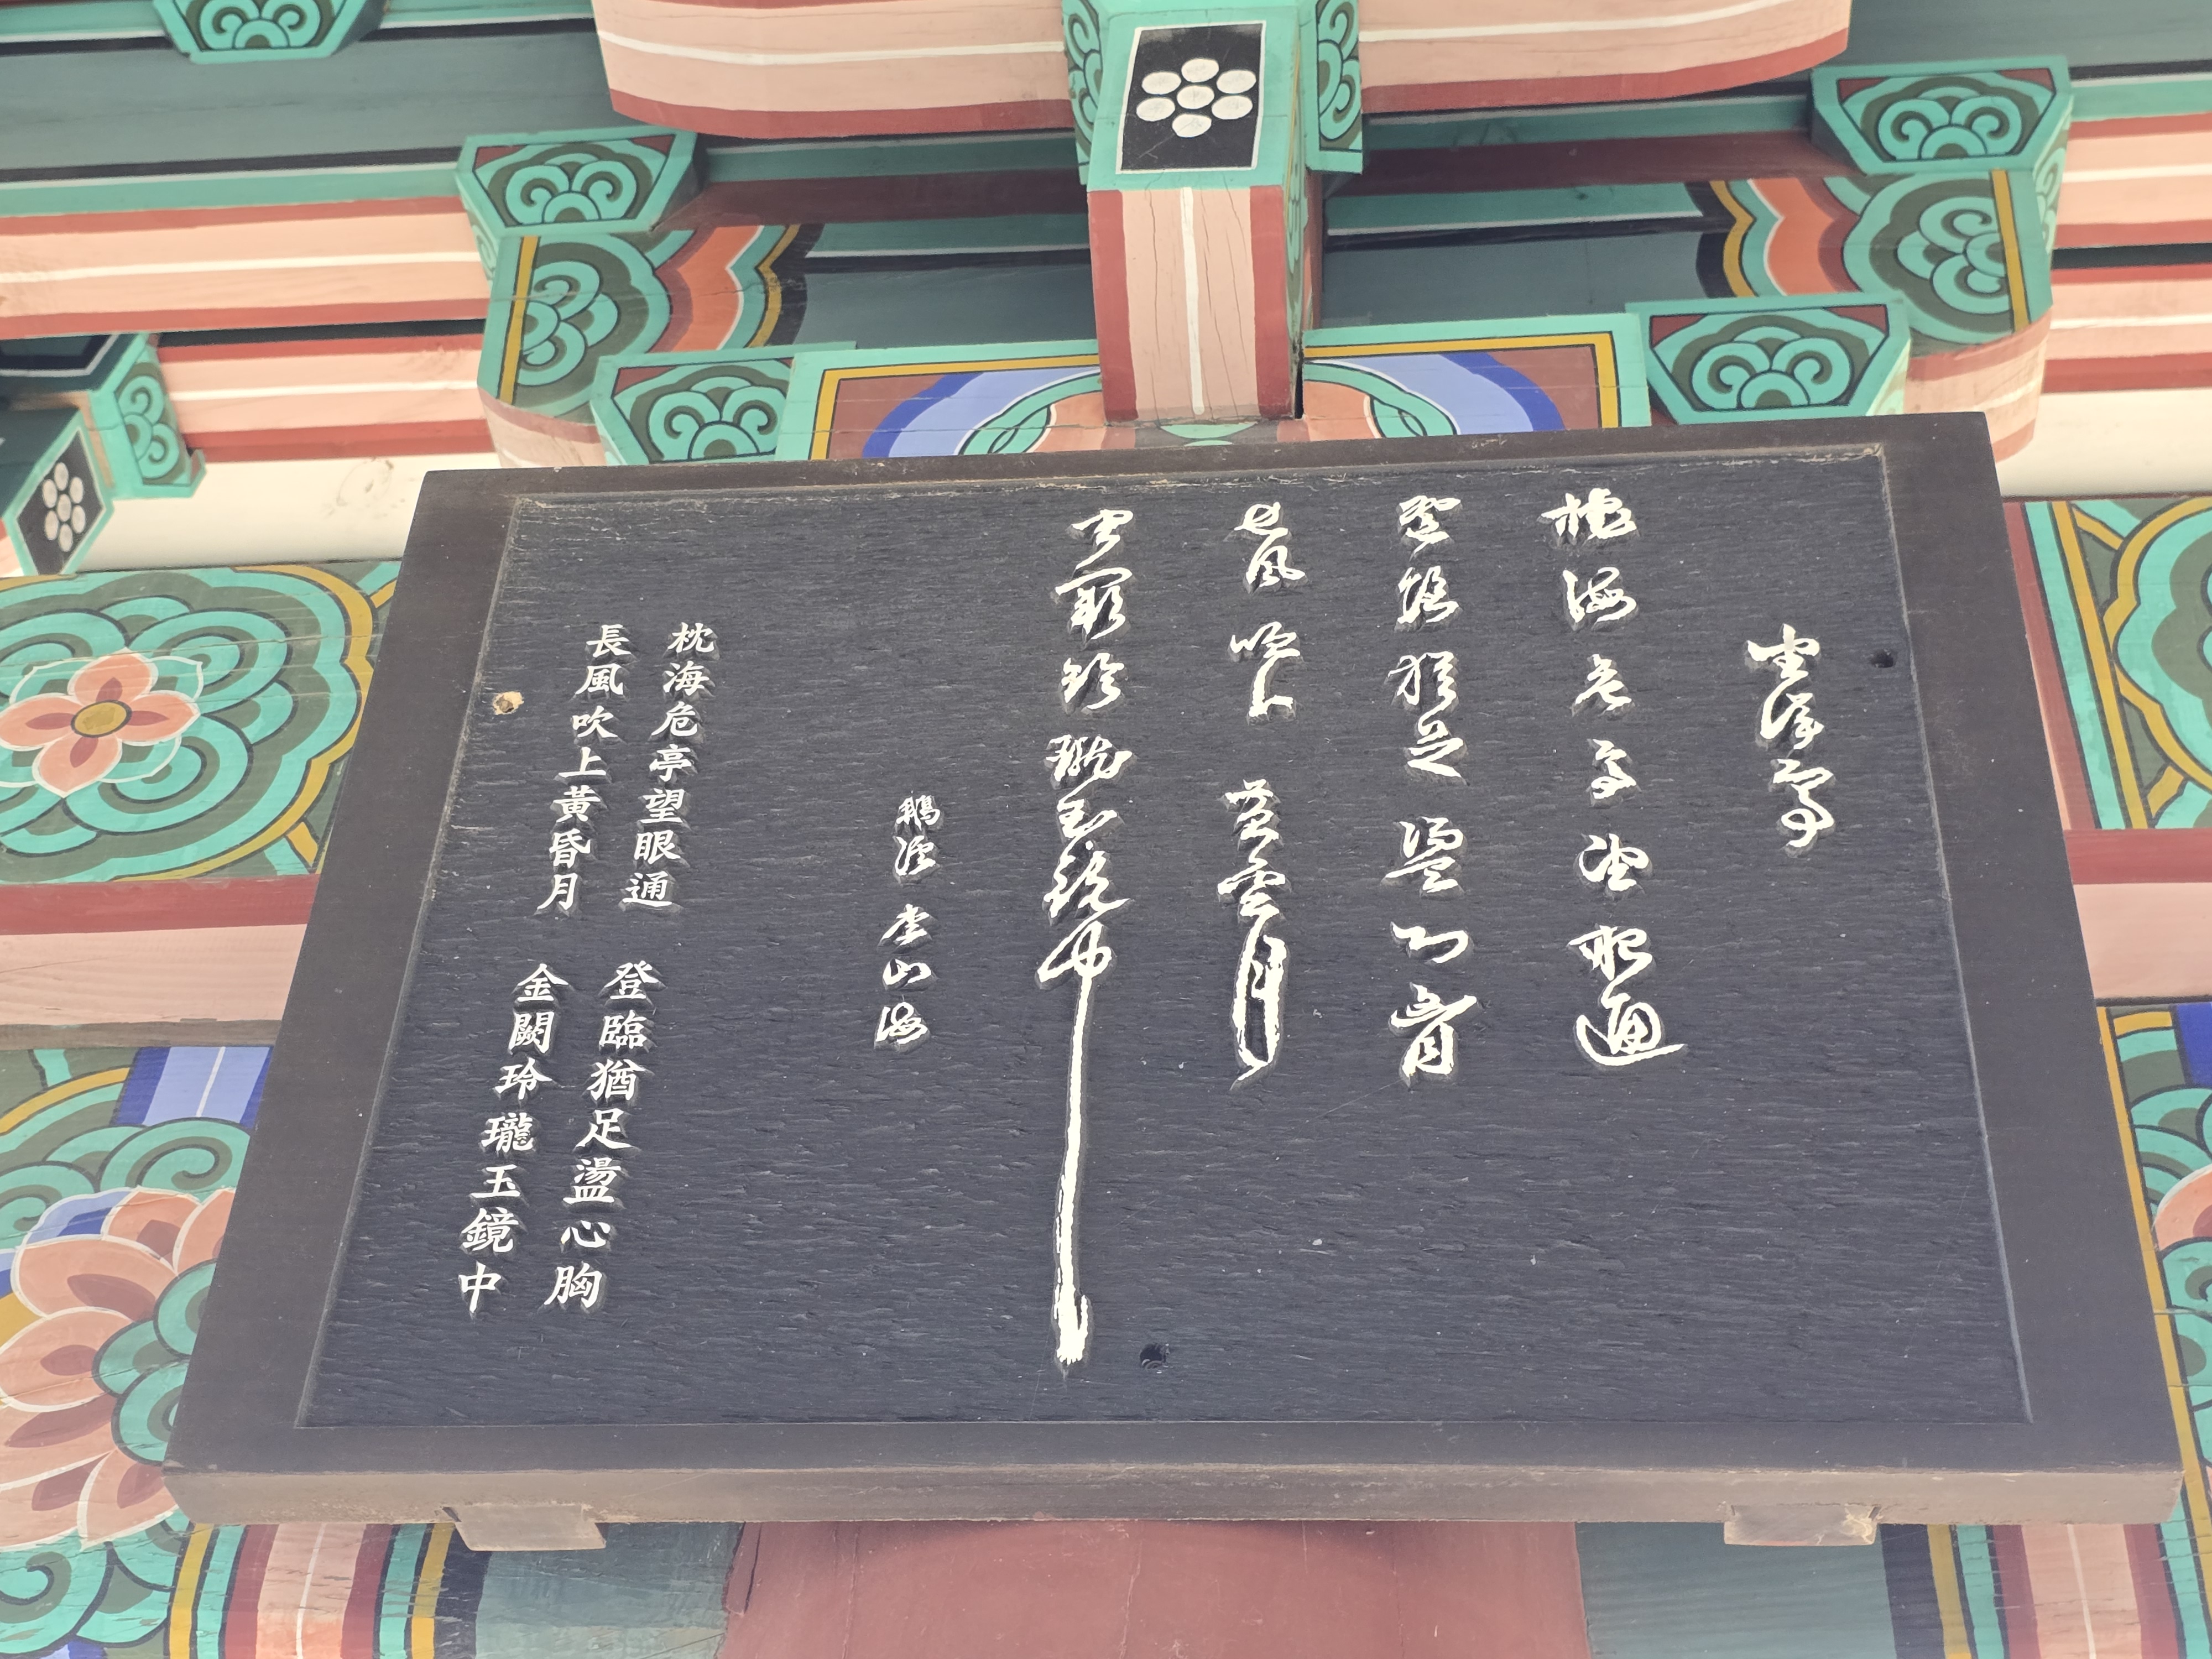 望洋亭
枕海危亭望眼通
登臨猶足盪心胸
長風吹上黃昏月
金闕玲瓏玉鏡中
鵝溪 李山海
枕海危亭望眼通 登臨猶足盪心胸
長風吹上黃昏月 金闕玲瓏玉鏡中